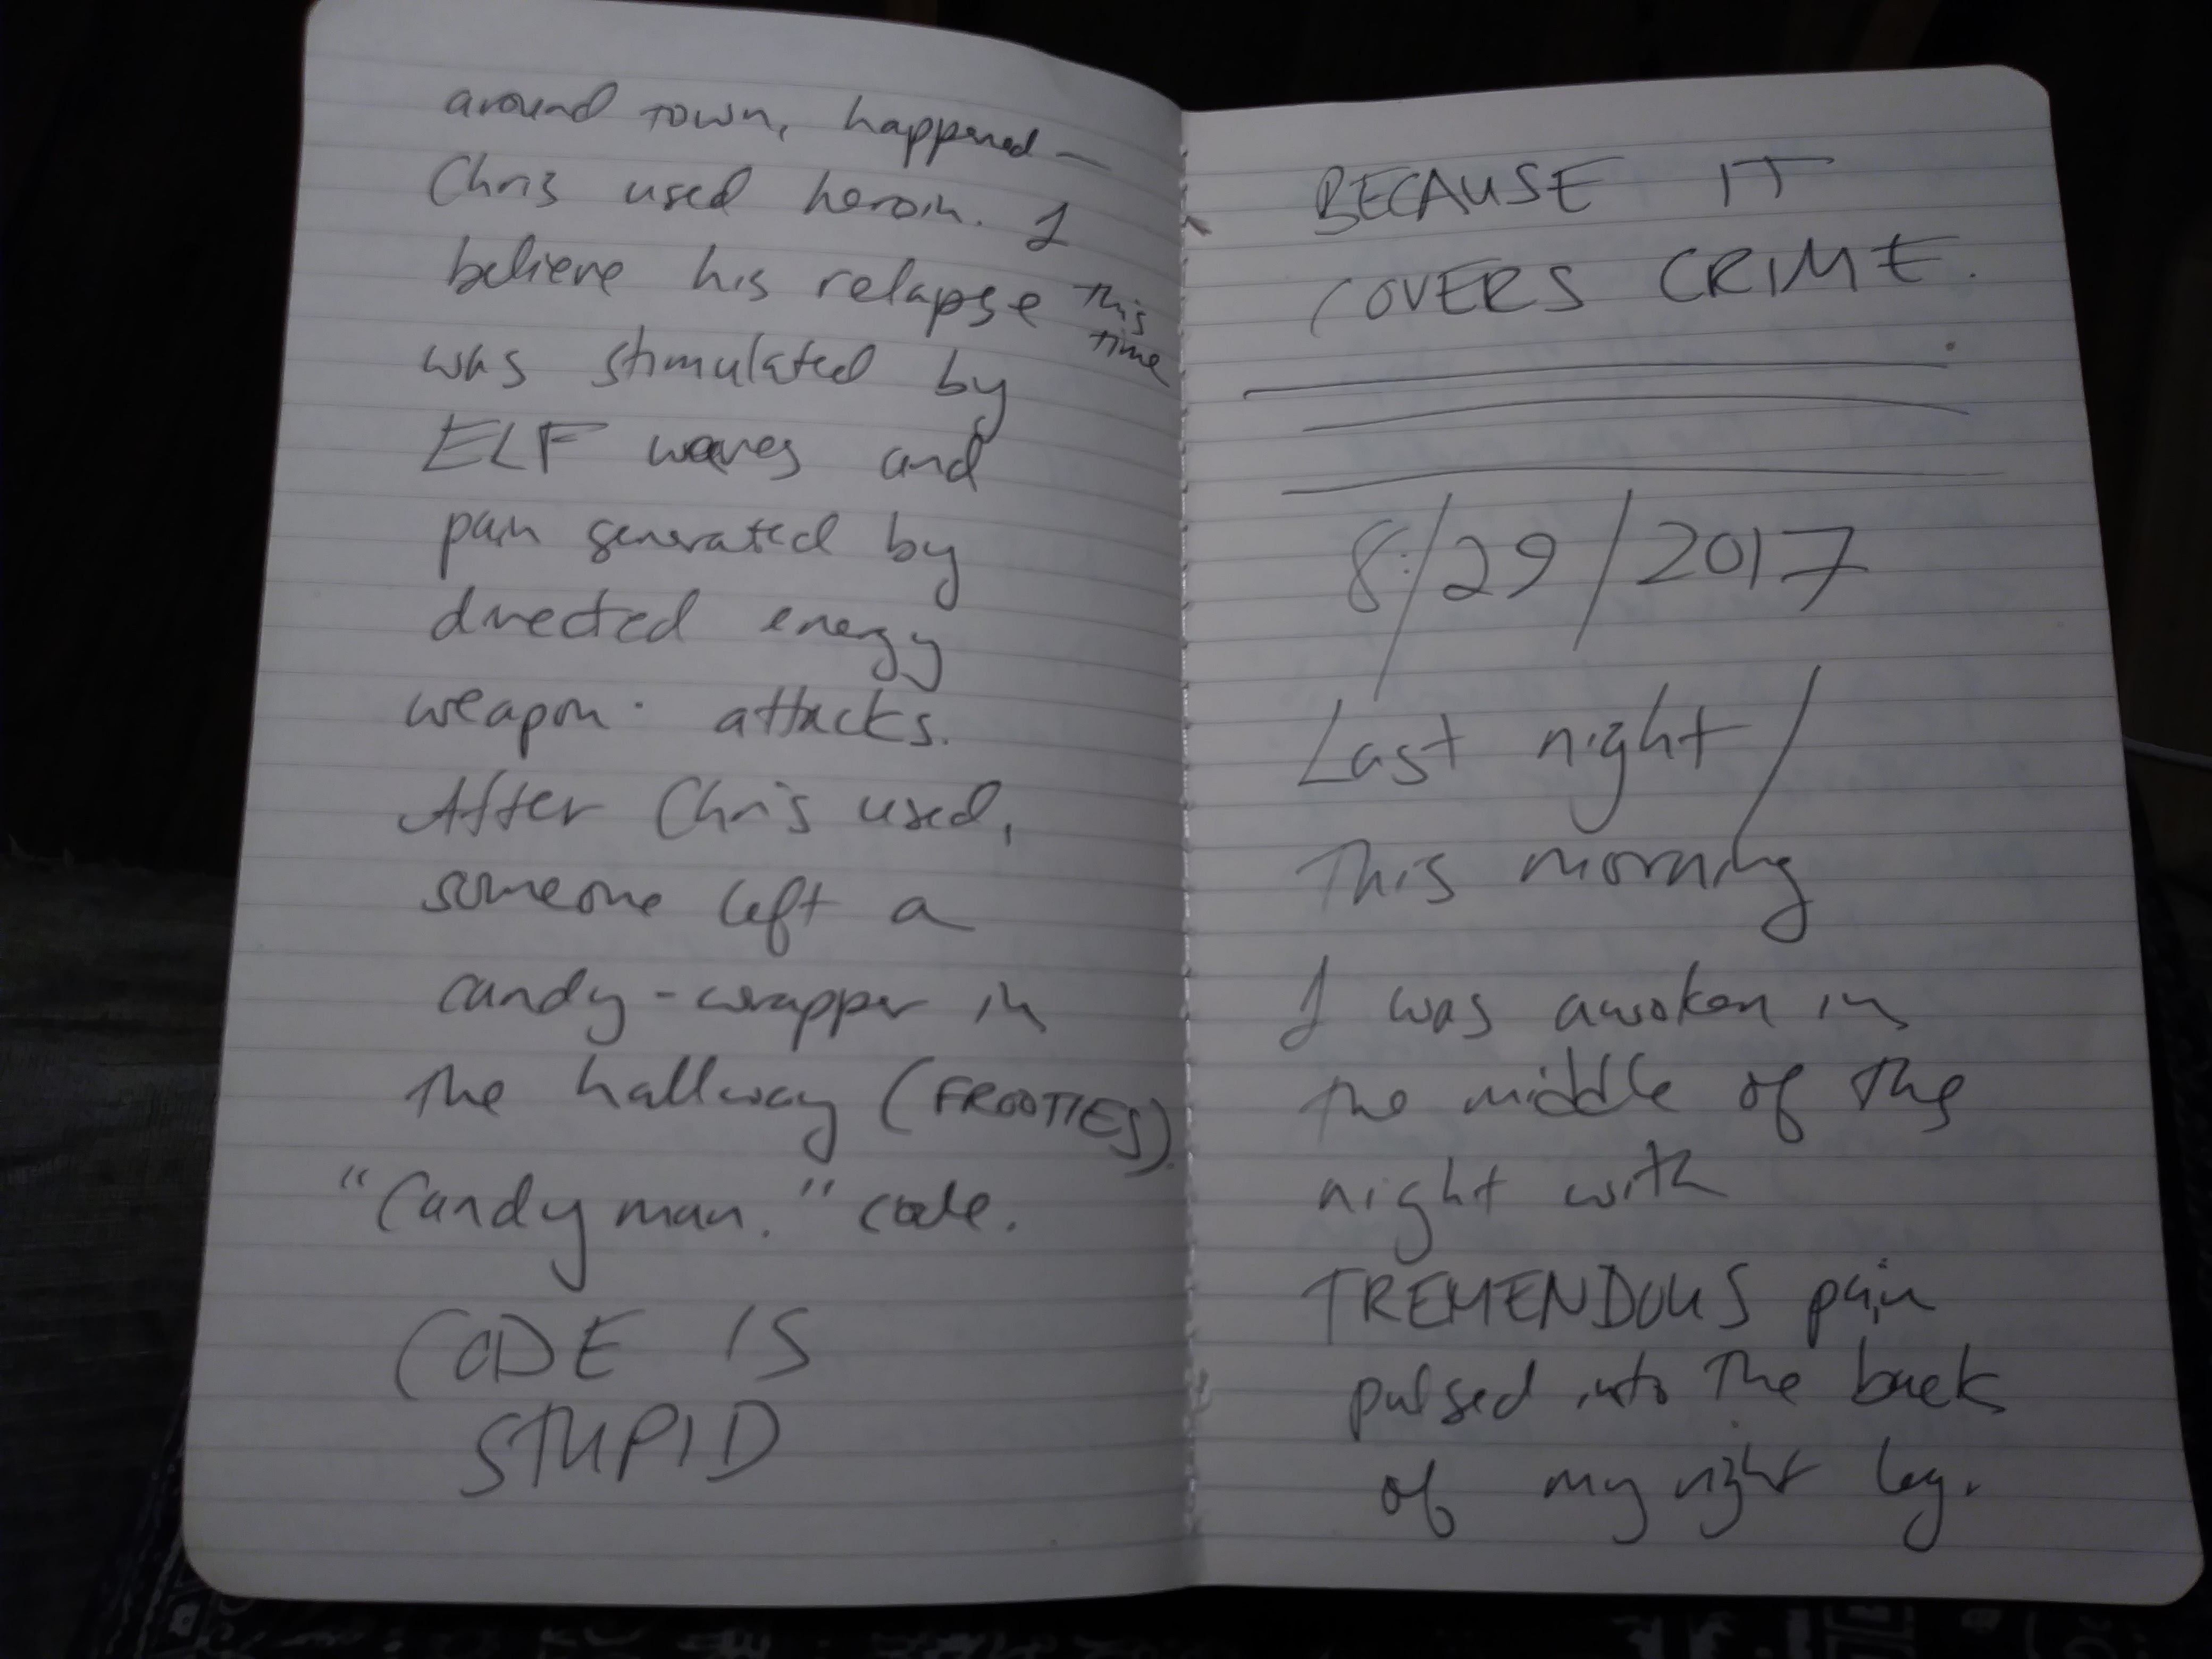 around town, happened —
Chris used heroin. I
believe his relapse this
time
was stimulated by
ELF waves and
pain generated by
directed energy
weapon attacks.
After Chris used,
someone left a
candy-wrapper in
the hallway (FROOTIES).
"Candy man." code.
CODE IS
STUPID
BECAUSE IT
COVERS CRIME.
8/29/2017
Last night/
This morning
I was awoken in
the middle of the
night with
TREMENDOUS pain
pulsed into the back
of my right leg.